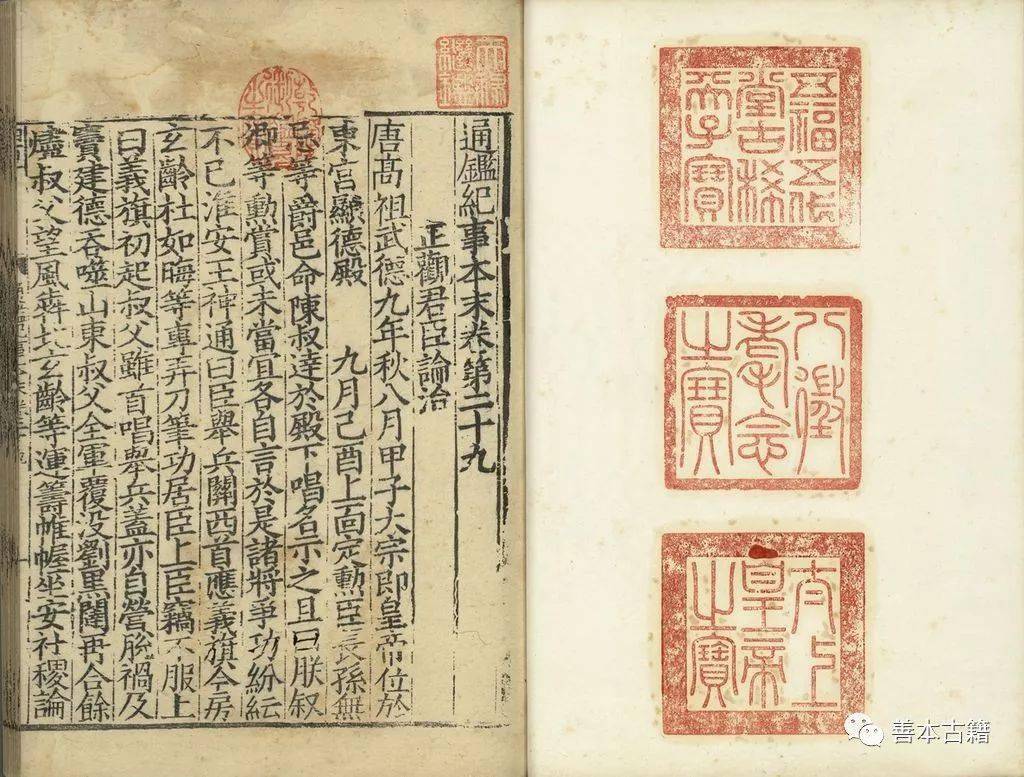 五福五代
堂古稀
天子寶
八徵
耄念
之寶
太上
皇帝
之寶
天祿
繼鑑
通鑑紀事本末卷第二十九
正觀君臣論治
唐高祖武德九年秋八月甲子大宗即皇帝位於
東宮顯德殿　九月己酉上面定勳臣長孫無
忌等爵邑命陳叔達於殿下唱名示之且曰朕叙
卿等勳賞或未當宜各自言於是諸將爭功紛紜
不已淮安王神通曰臣舉兵關西首應義旗今房
玄齡杜如晦等專弄刀筆功居臣上臣竊不服上
曰義旗初起叔父雖首唱舉兵蓋亦自營脫禍及
竇建德吞噬山東叔父全軍覆没劉黑闥再合餘
燼叔父望風犇北玄齡等運籌帷幄坐安社稷論
善本古籍